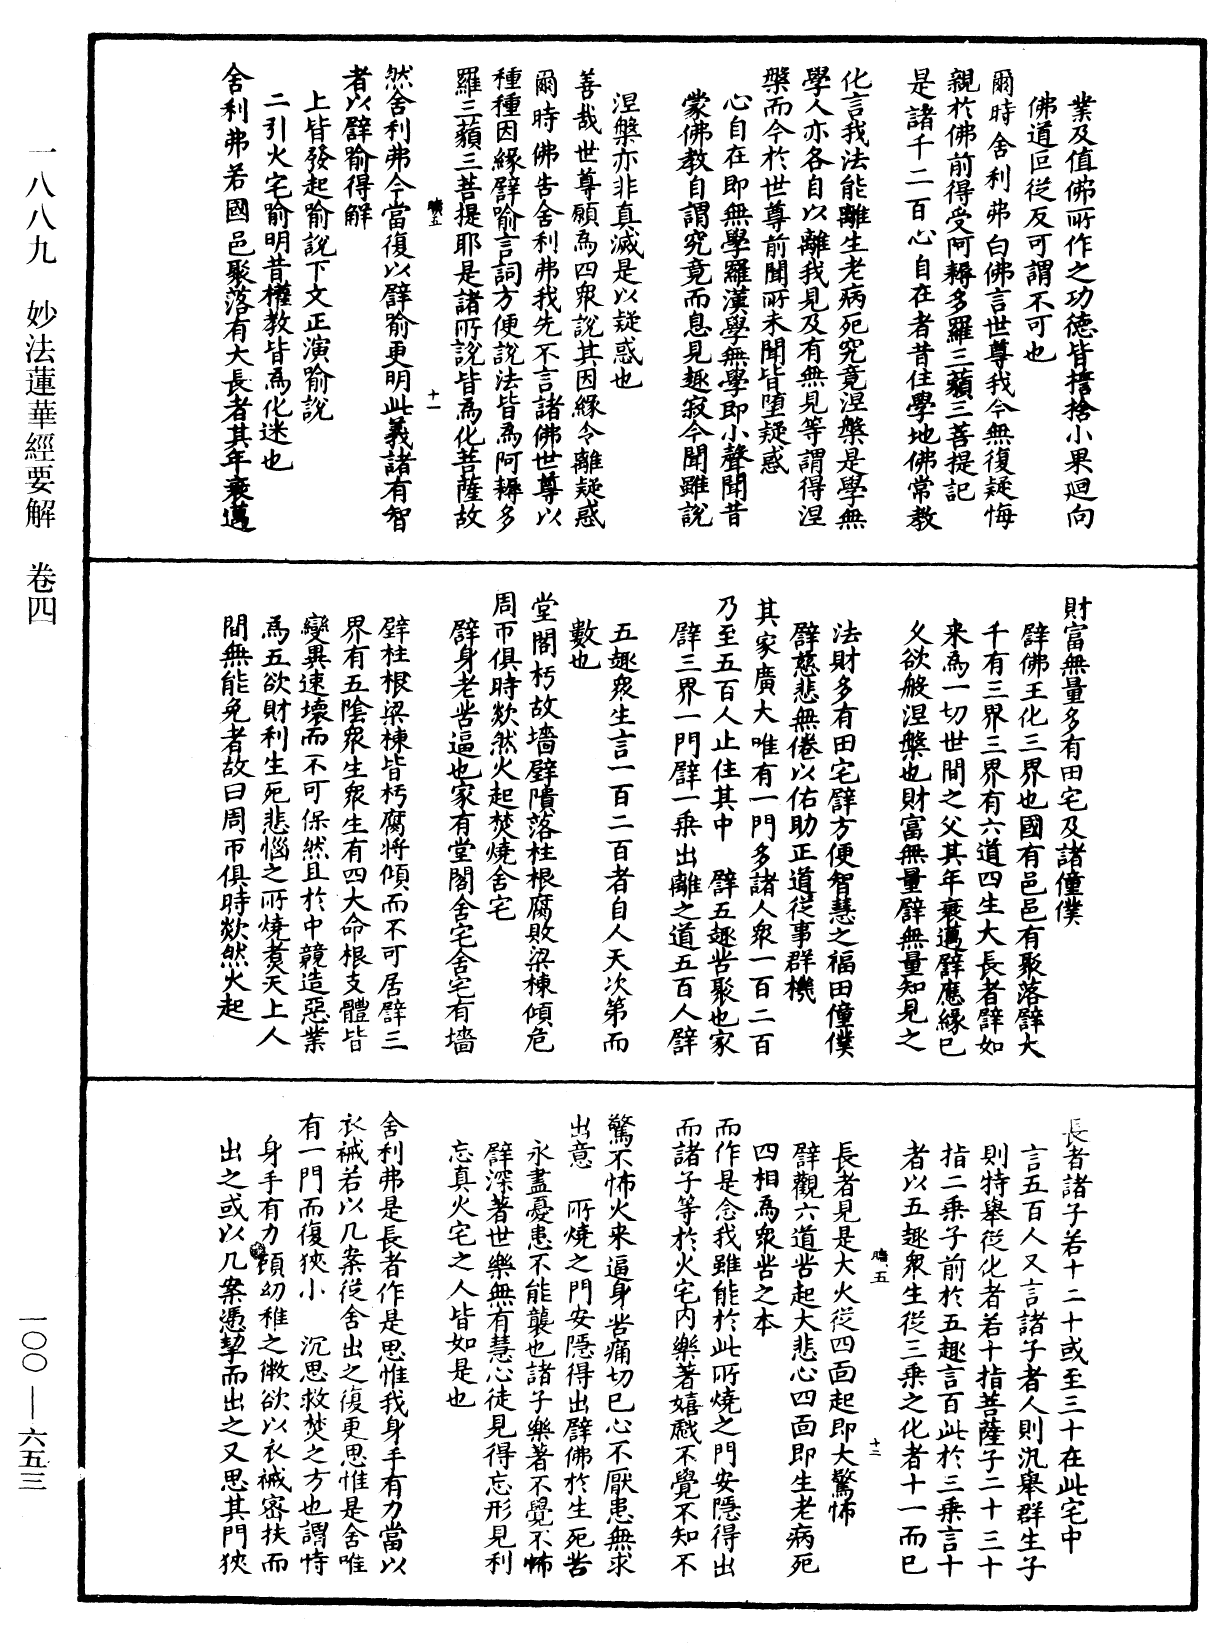 業及值佛所作之功德皆捨小果迴向
佛道叵從反可謂不可也
爾時舍利弗白佛言世尊我今無復疑悔
親於佛前得受阿耨多羅三藐三菩提記
是諸千二百心自在者昔住學地佛常教
化言我法能離生老病死究竟涅槃是學無
學人亦各自以離我見及有無見等謂得涅
槃而今於世尊前聞所未聞皆墮疑惑
心自在即無學羅漢學無學即小聲聞昔
蒙佛教自謂究竟而息見趣寂今聞雖說
涅槃亦非真滅是以疑惑也
善哉世尊願為四眾說其因緣令離疑惑
爾時佛告舍利弗我先不言諸佛世尊以
種種因緣譬喻言詞方便說法皆為阿耨多
羅三藐三菩提耶是諸所說皆為化菩薩故
五 十一
然舍利弗今當復以譬喻更明此義諸有智
者以譬喻得解
上皆發起喻說下文正演喻說
二引火宅喻明昔權教皆為化迷也
舍利弗若國邑聚落有大長者其年衰邁
財富無量多有田宅及諸僮僕
譬佛王化三界也國有邑邑有聚落譬大
千有三界三界有六道四生大長者譬如
来為一切世間之父其年衰邁譬應緣已
久欲般涅槃也財富無量譬無量知見之
法財多有田宅譬方便智慧之福田僮僕
譬慈悲無倦以佑助正道從事群機
其家廣大唯有一門多諸人眾一百二百
乃至五百人止住其中 譬五趣苦聚也家
譬三界一門譬一乘出離之道五百人譬
五趣眾生言一百二百者自人天次第而
數也
堂閣朽故墻壁隤落柱根腐敗梁棟傾危
周帀俱時欻然火起焚燒舍宅
譬身老苦逼也家有堂閣舍宅舍宅有墻
壁柱根梁棟皆朽腐將傾而不可居譬三
界有五陰眾生眾生有四大命根支體皆
變異速壞而不可保然且於中競造惡業
為五欲財利生死悲惱之所燒煑天上人
間無能免者故曰周帀俱時欻然火起
長者諸子若十二十或至三十在此宅中
言五百人又言諸子者人則汎舉群生子
則特舉從化者若十指菩薩子二十三十
指二乘子前於五趣言百此於三乘言十
者以五趣眾生從三乘之化者十一而已
五 十二
長者見是大火從四面起即大驚怖
譬觀六道苦起大悲心四面即生老病死
四相為眾苦之本
而作是念我雖能於此所燒之門安隱得出
而諸子等於火宅內樂著嬉戲不覺不知不
驚不怖火来逼身苦痛切已心不厭患無求
出意 所燒之門安隱得出譬佛於生死苦
永盡憂患不能襲也諸子樂著不覺不怖
譬深著世樂無有慧心徒見得忘形見利
忘真火宅之人皆如是也
舍利弗是長者作是思惟我身手有力當以
衣裓若以几案從舍出之復更思惟是舍唯
有一門而復狹小 沉思救焚之方也謂恃
身手有力頓幼稚之微欲以衣裓密扶而
出之或以几案憑挈而出之又思其門狹
一八八九 妙法蓮華經要解 卷四
一〇〇—六五三